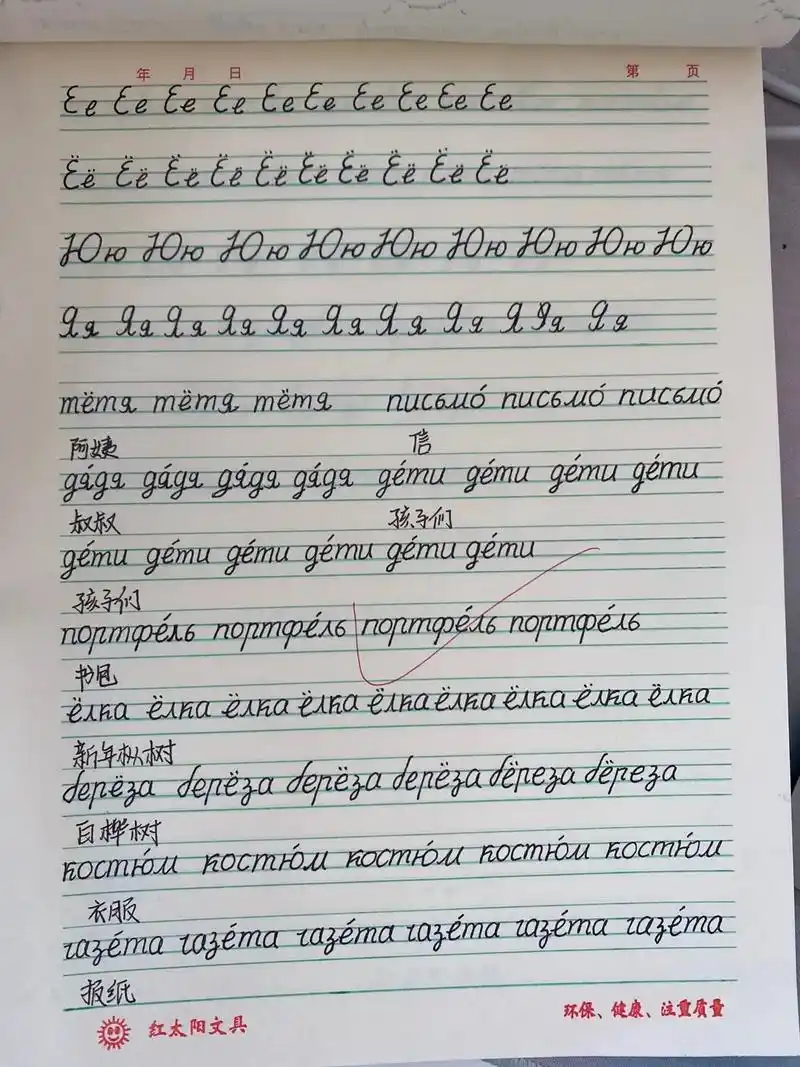 年 月 日 第 页
Ее Ее Ее Ее Ее Ее Ее Ее Ее Ее
Ёё Ёё Ёё Ёё Ёё Ёё Ёё Ёё Ёё Ёё
Юю Юю Юю Юю Юю Юю Юю Юю Юю
Яя Яя Яя Яя Яя Яя Яя Яя Я Яя Яя
тётя тётя тётя письмо́ письмо́ письмо́
阿姨 信
дя́дя дя́дя дя́дя дя́дя де́ти де́ти де́ти де́ти
叔叔 孩子们
де́ти де́ти де́ти де́ти де́ти де́ти
孩子们
портфе́ль портфе́ль портфе́ль портфе́ль
书包
ёлка ёлка ёлка ёлка ёлка ёлка ёлка ёлка ёлка
新年枞树
берёза берёза берёза берёза бёреза бёреза
白桦树
костю́м костю́м костю́м костю́м костю́м
衣服
газе́та газе́та газе́та газе́та газе́та газе́та
报纸
红太阳文具 环保、健康、注重质量